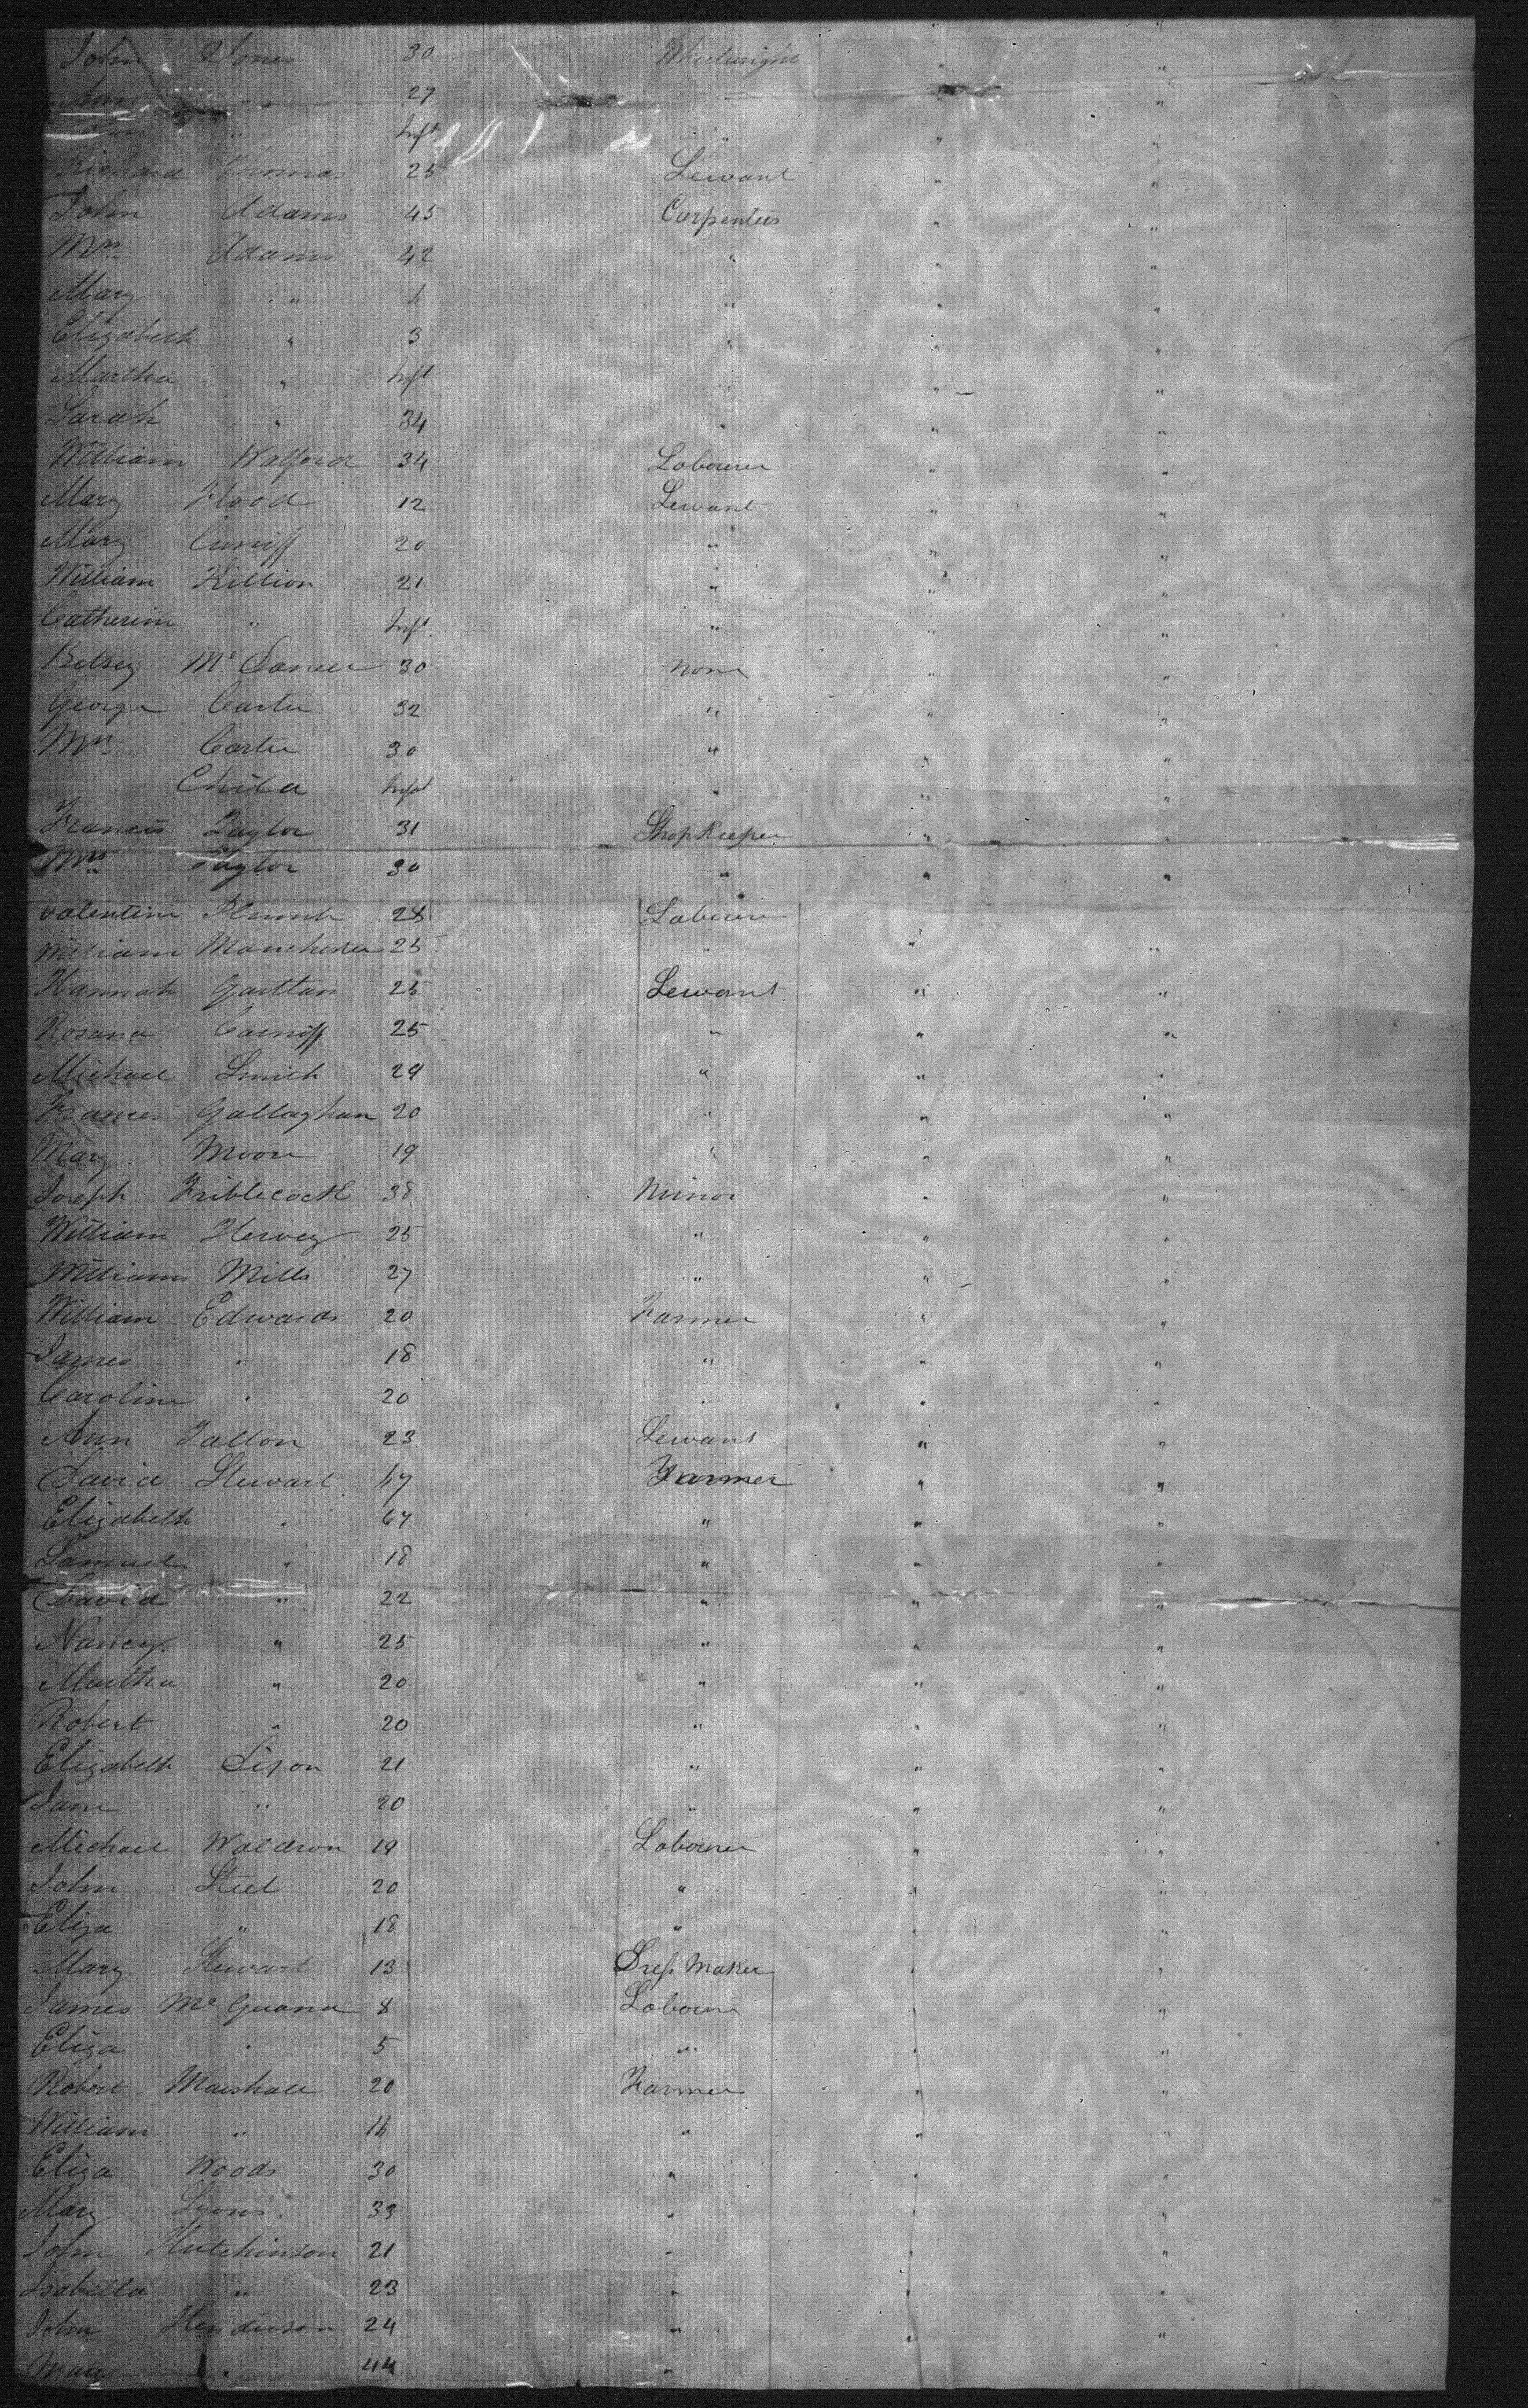 John Jones 30 Wheelwright " "
Ann " 27 " " "
" Inft " " "
Richard Thomas 25 Servant " "
John Adams 45 Carpenter " "
Mrs Adams 42 " " "
Mary " " " "
Elizabeth " 3 " " "
Martha " Inft " " "
Sarah " 34 " " "
William Walford 34 Labourer " "
Mary Flood 12 Servant " "
Mary Cuniff 20 " " "
William Killion 21 " " "
Catherine " Inft " " "
Betsey 30 None " "
George Carter 32 " " "
Mrs Carter 30 " " "
Child Infot " " "
Francis Taylor 31 Shopkeeper " "
Mrs Taylor 30 " " "
Valentine Plumb 28 Labourer
William Manchester 25 " " "
Hannah Garttan 25 Servant " "
Rosana Carniff 25 " " "
Michael Smith 29 " " "
Frances Gallaghan 20 " " "
Mary Moore 19 " " "
Joseph Friblecock 38 Minor " "
William Hervey 25 " " "
Williams Mills 27 " " "
William Edwards 20 Farmer " "
James " 18 " " "
Caroline " 20 " " "
Ann Fallon 23 Servant " "
David Stewart 67 Farmer " "
Elizabeth " 67 " " "
Samuel " 18 " " "
David " 22 " " "
Nancy " 25 " " "
Martha " 20 " " "
Robert " 20 " " "
Elizabeth Dixon 21 " " "
Jane " 20 " " "
Michael Waldron 19 Labourer " "
John Steel 20 " " "
Eliza " 18 " " "
Mary Stewart 13 Dress Maker " "
James 8 Labourer " "
Eliza " 5 " " "
Robert Marshall 20 Farmer " "
William " 16 " " "
Eliza Woods 30 " " "
Mary Lyons 33 " " "
John Hutchinson 21 " " "
Isabella " 23 " " "
John Henderson 24 " " "
Mary " 44 "